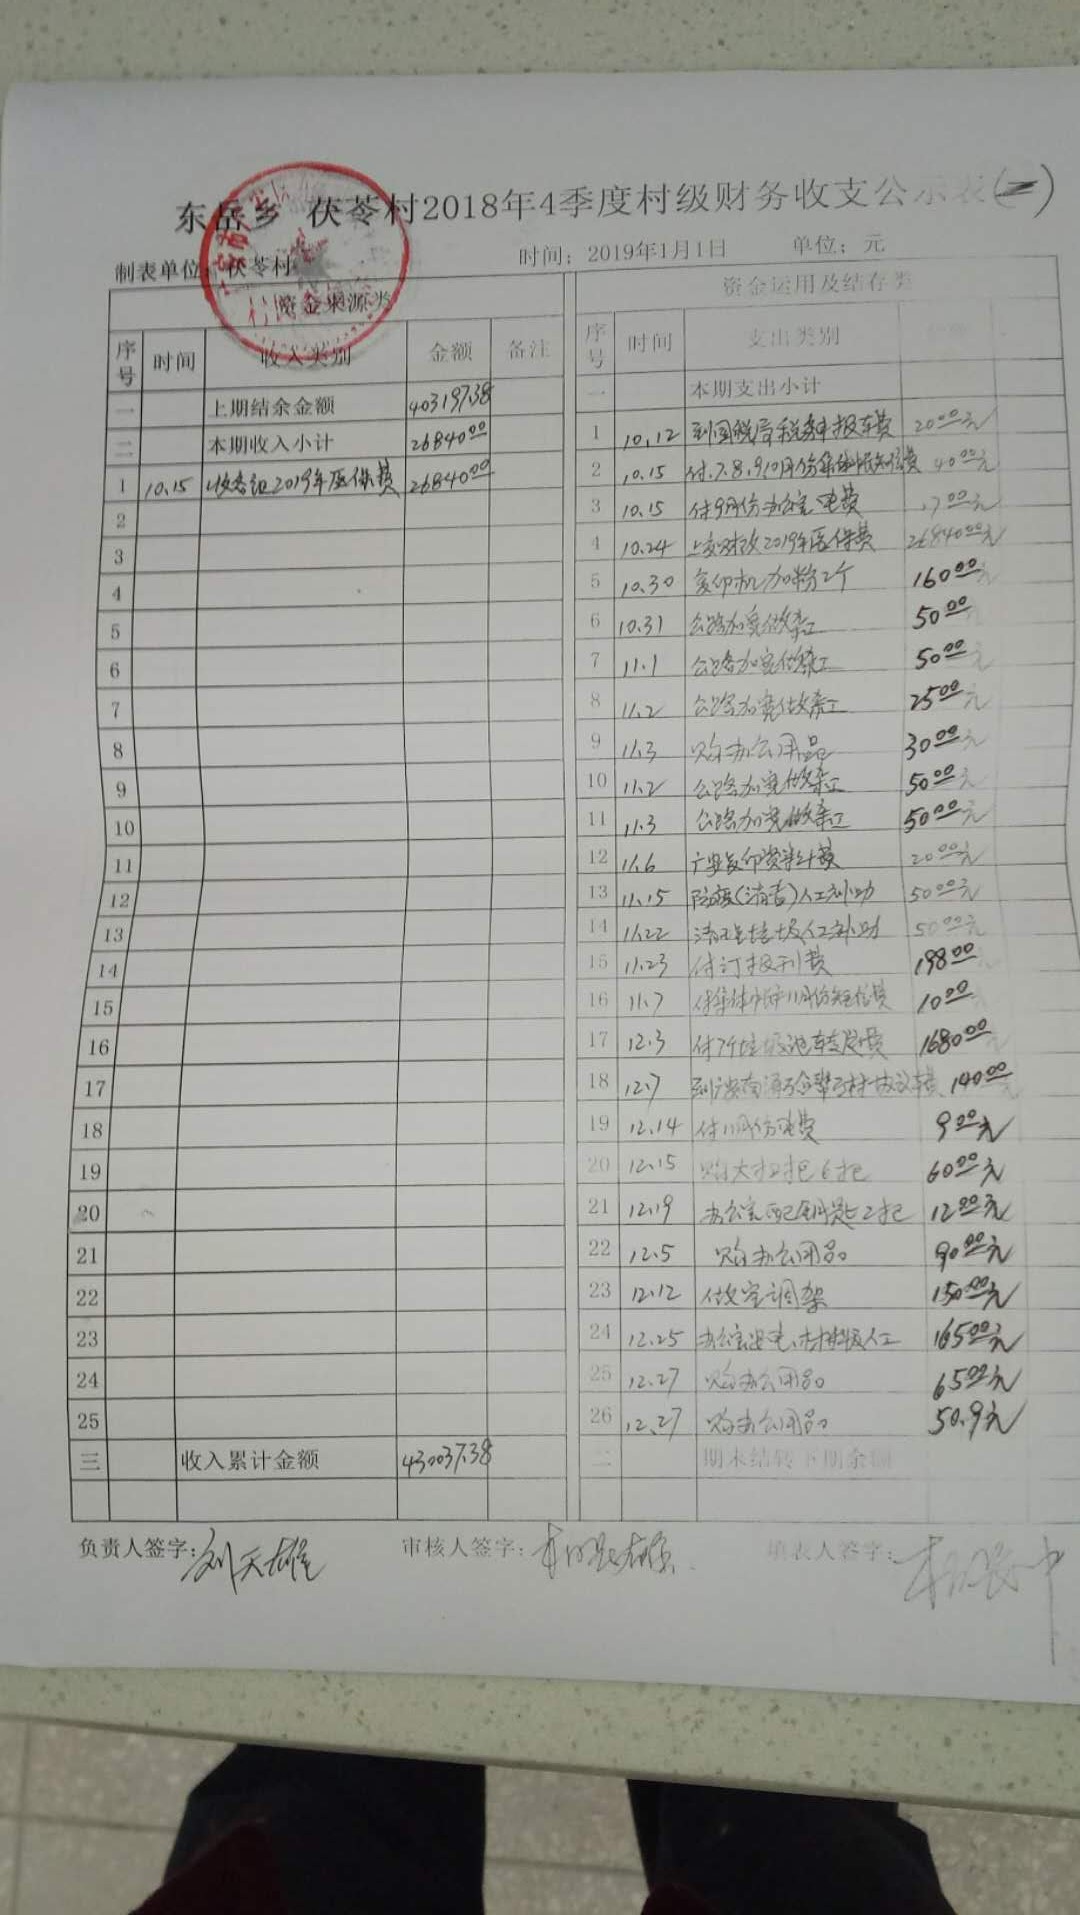 东岳乡 茯苓村2018年4季度村级财务收支公示表(二)
制表单位:茯苓村 时间:2019年1月1日 单位:元
资金来源类 资金运用及结存类
序号 时间 收入类别 金额 备注 序号 时间 支出类别
一 上期结余金额 403197.38 一 本期支出小计
二 本期收入小计 26840.00 1 10.12 到国税局税务申报车费 20.00元
1 10.15 收各组2019年医保费 26840.00 2 10.15 付7.8.9.10月份集体 费 40.00元
2 3 10.15 付9月份办公室电费 17.00元
3 4 10.24 上交财政2019年医保费 26840.00元
4 5 10.30 复印机加粉2个 160.00元
5 6 10.31 公路加宽做杂工 50.00元
6 7 11.1 公路加宽做杂工 50.00元
7 8 11.2 公路加宽做杂工 25.00元
8 9 11.3 购办公用品 30.00元
9 10 11.2 公路加宽做杂工 50.00元
10 11 11.3 公路加宽做杂工 50.00元
11 12 11.6 广安复印资料费 20.00元
12 13 11.15 防疫(消毒)人工补助 50.00元
13 14 11.22 清理垃圾人工补助 50.00元
14 15 11.23 付订报刊费 198.00
15 16 11.7 付集体 11月份短信费 10.00
16 17 12.3 付7个垃圾池 费 1680.00
17 18 12.7 到广安 车费 140.00
18 19 12.14 付11月份电费 9.00元
19 20 12.15 购大扫把6把 60.00元
20 21 12.19 办公室配钥匙2把 12.00元
21 22 12.5 购办公用品 90.00元
22 23 12.12 做空调架 150.00元
23 24 12.25 办公室安电、材料及人工 165.00元
24 25 12.27 购办公用品 65.00元
25 26 12.27 购办公用品 50.9元
三 收入累计金额 430037.38 二 期末结转下期余额
负责人签字:刘天雄 审核人签字: 填表人签字: